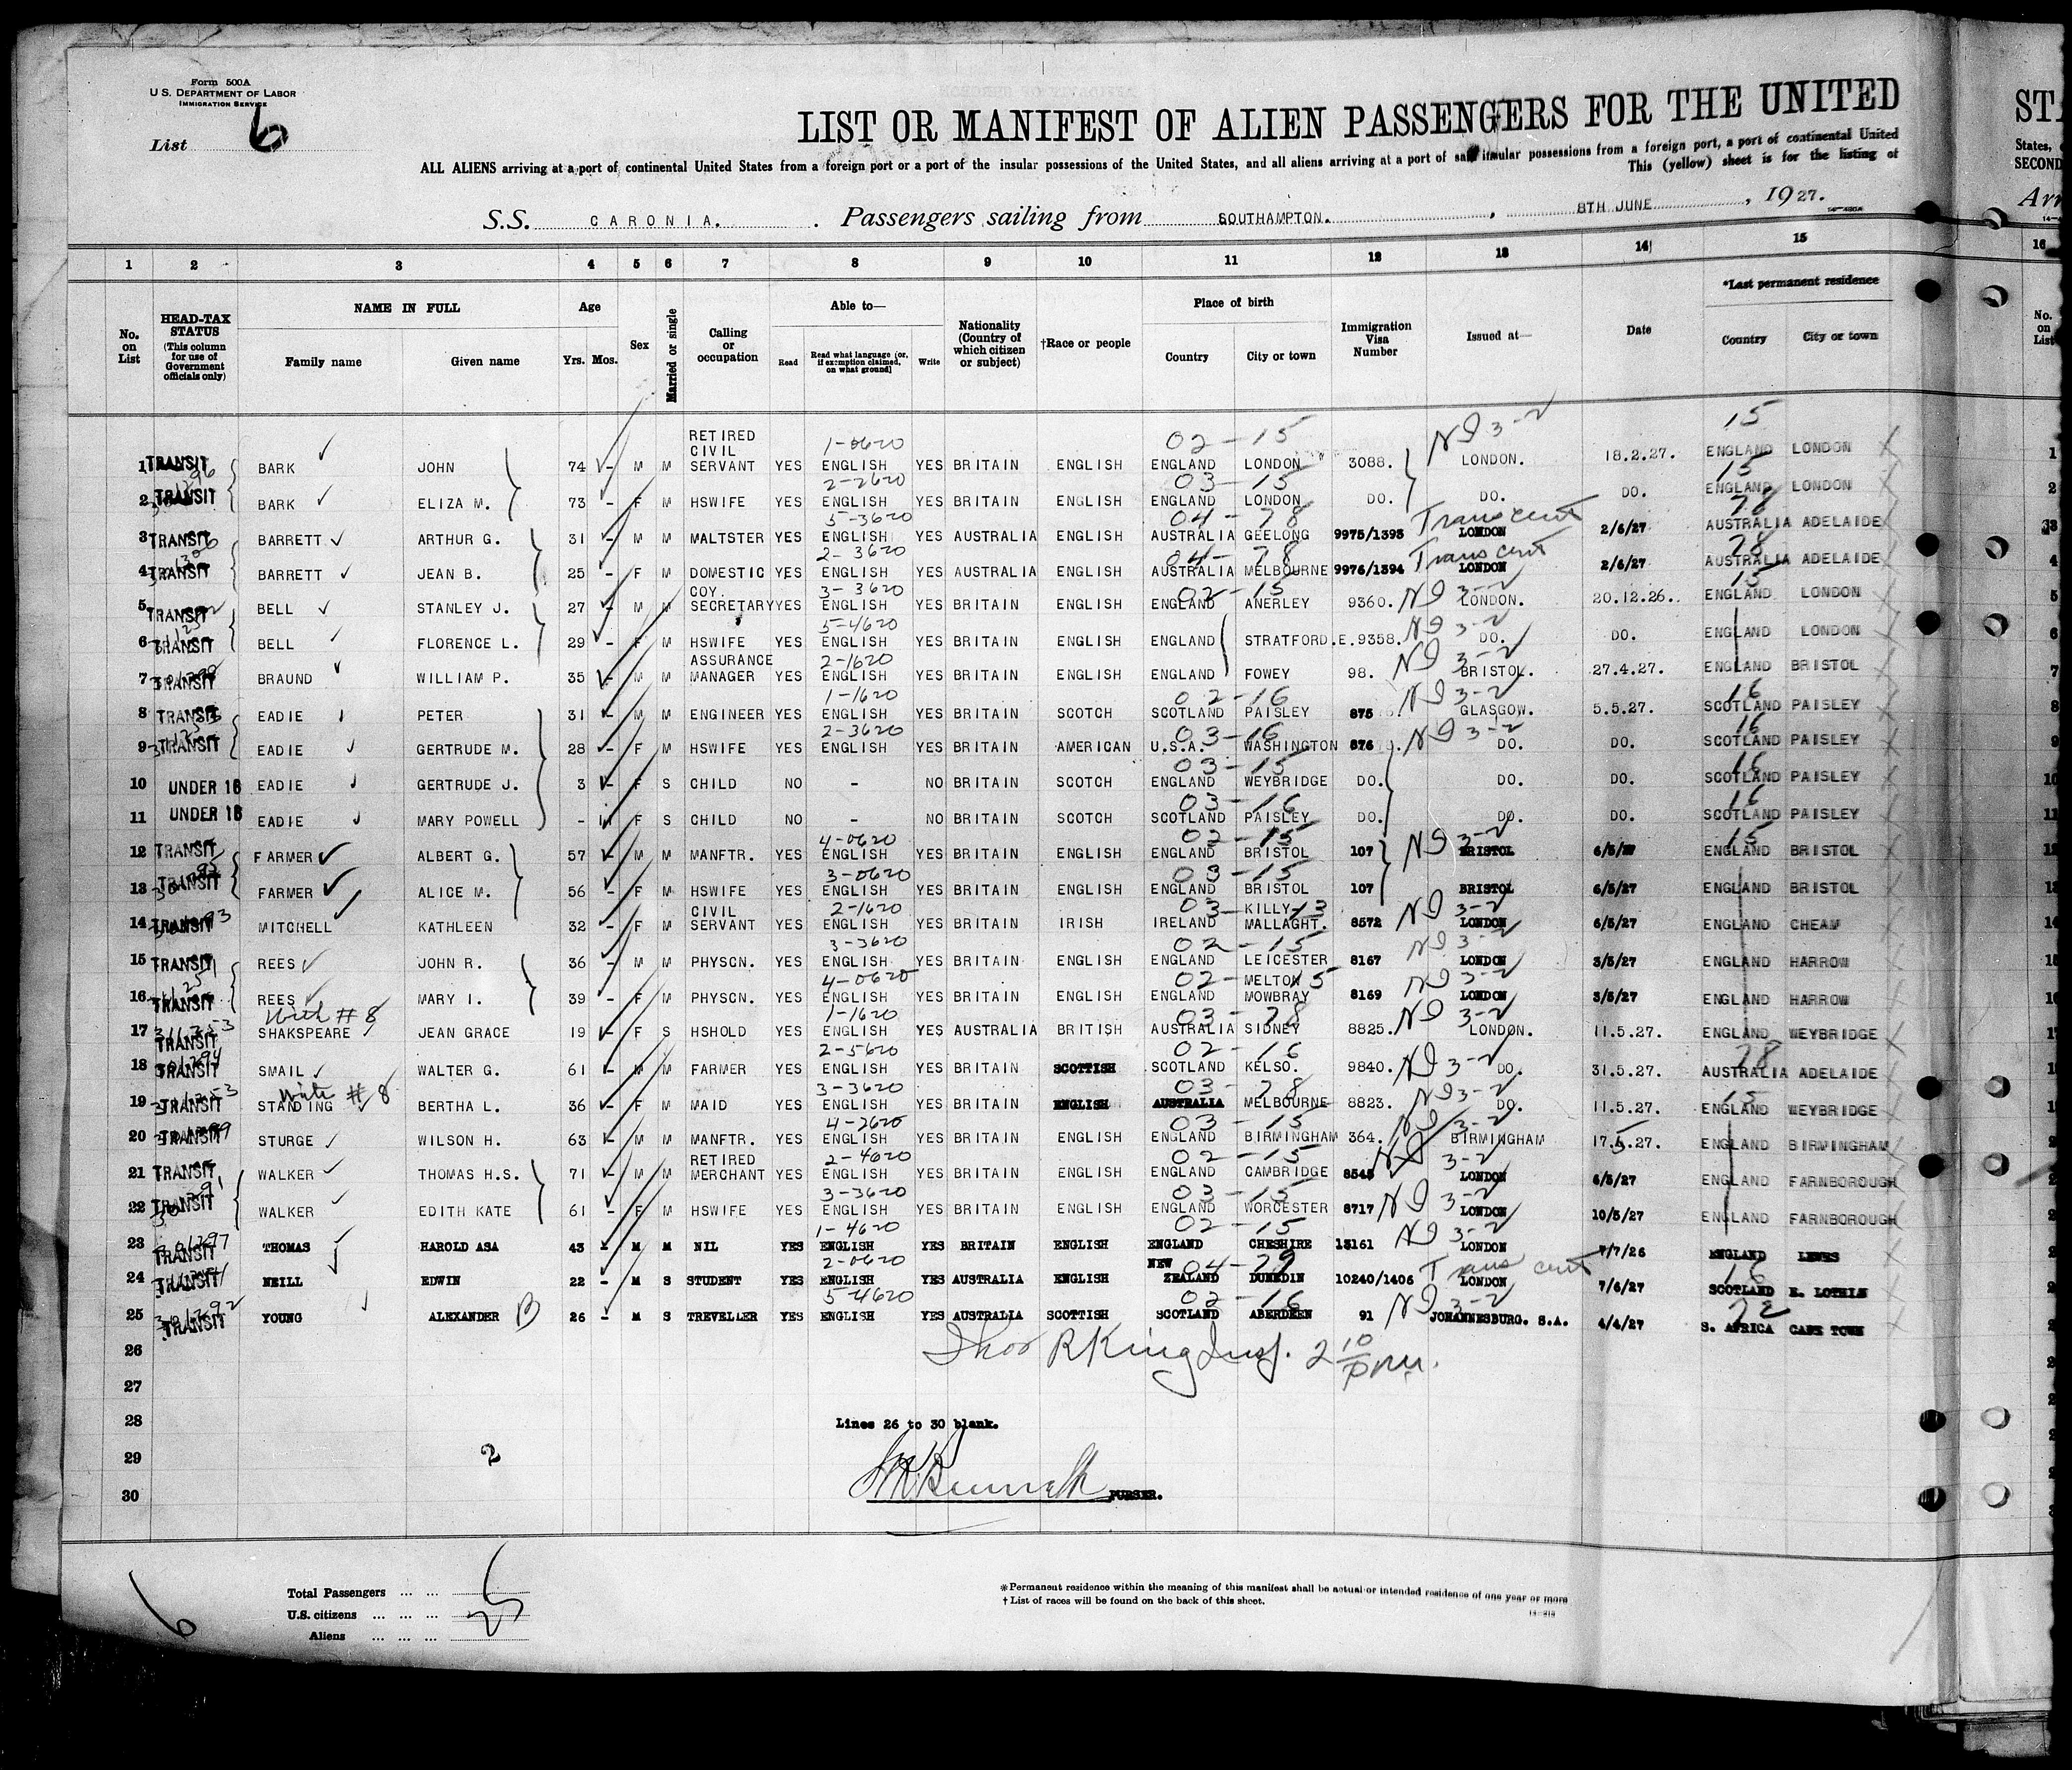 Form 500A
U.S. DEPARTMENT OF LABOR
IMMIGRATION SERVICE
List 6
LIST OR MANIFEST OF ALIEN PASSENGERS FOR THE UNITED
ALL ALIENS arriving at a port of continental United States from a foreign port or a port of the insular possessions of the United States, and all aliens arriving at a port of said insular possessions from a foreign port, a port of continental United
This (yellow) sheet is for the listing of
S.S. CARONIA. Passengers sailing from SOUTHAMPTON. , 8TH JUNE , 1927.
1 2 3 4 5 6 7 8 9 10 11 12 13 14 15
No. on List HEAD-TAX STATUS (This column for use of Government officials only) NAME IN FULL Family name Given name Age Yrs. Mos. Sex Married or single Calling or occupation Able to— Read Read what language [or, if exemption claimed, on what ground] Write Nationality (Country of which citizen or subject) †Race or people Place of birth Country City or town Immigration Visa Number Issued at— Date *Last permanent residence Country City or town
1 TRANSIT BARK JOHN 74 - M M RETIRED CIVIL SERVANT YES 1-0620 ENGLISH YES BRITAIN ENGLISH 02-15 ENGLAND LONDON 3088. NI 3-2 LONDON. 18.2.27. 15 ENGLAND LONDON
2 TRANSIT BARK ELIZA M. 73 - F M HSWIFE YES 2-2620 ENGLISH YES BRITAIN ENGLISH 03-15 ENGLAND LONDON DO. DO. DO. 15 ENGLAND LONDON
3 TRANSIT BARRETT ARTHUR G. 31 - M M MALTSTER YES 5-3620 ENGLISH YES AUSTRALIA ENGLISH 04-78 AUSTRALIA GEELONG 9975/1393 Trans cert LONDON 2/6/27 78 AUSTRALIA ADELAIDE
4 TRANSIT BARRETT JEAN B. 25 - F M DOMESTIC YES 2-3620 ENGLISH YES AUSTRALIA ENGLISH 04-78 AUSTRALIA MELBOURNE 9976/1394 Trans cert LONDON 2/6/27 78 AUSTRALIA ADELAIDE
5 TRANSIT BELL STANLEY J. 27 - M M COY. SECRETARY YES 3-3620 ENGLISH YES BRITAIN ENGLISH 02-15 ENGLAND ANERLEY 9360. NI 3-2 LONDON. 20.12.26. 15 ENGLAND LONDON
6 TRANSIT BELL FLORENCE L. 29 - F M HSWIFE YES 5-4620 ENGLISH YES BRITAIN ENGLISH ENGLAND STRATFORD.E. 9358. NI 3-2 DO. DO. ENGLAND LONDON
7 TRANSIT BRAUND WILLIAM P. 35 - M M ASSURANCE MANAGER YES 2-1620 ENGLISH YES BRITAIN ENGLISH ENGLAND FOWEY 98. NI 3-2 BRISTOL. 27.4.27. ENGLAND BRISTOL
8 TRANSIT EADIE PETER 31 - M M ENGINEER YES 1-1620 ENGLISH YES BRITAIN SCOTCH 02-16 SCOTLAND PAISLEY 875 NI 3-2 GLASGOW. 5.5.27. 16 SCOTLAND PAISLEY
9 TRANSIT EADIE GERTRUDE M. 28 - F M HSWIFE YES 2-3620 ENGLISH YES BRITAIN AMERICAN 03-16 U.S.A. WASHINGTON 876 NI 3-2 DO. DO. 16 SCOTLAND PAISLEY
10 UNDER 16 EADIE GERTRUDE J. 3 - F S CHILD NO - NO BRITAIN SCOTCH 03-15 ENGLAND WEYBRIDGE DO. DO. DO. 16 SCOTLAND PAISLEY
11 UNDER 16 EADIE MARY POWELL - 11 F S CHILD NO - NO BRITAIN SCOTCH 03-16 SCOTLAND PAISLEY DO. DO. DO. 16 SCOTLAND PAISLEY
12 TRANSIT FARMER ALBERT G. 57 - M M MANFTR. YES 4-0620 ENGLISH YES BRITAIN ENGLISH 02-15 ENGLAND BRISTOL 107 NI 3-2 BRISTOL 6/5/27 15 ENGLAND BRISTOL
13 TRANSIT FARMER ALICE M. 56 - F M HSWIFE YES 3-0620 ENGLISH YES BRITAIN ENGLISH 03-15 ENGLAND BRISTOL 107 BRISTOL 6/5/27 ENGLAND BRISTOL
14 TRANSIT MITCHELL KATHLEEN 32 - F M CIVIL SERVANT YES 2-1620 ENGLISH YES BRITAIN IRISH 03-13 IRELAND KILLY-MALLAGHT. 8572 NI 3-2 LONDON 6/5/27 ENGLAND CHEAM
15 TRANSIT REES JOHN R. 36 - M M PHYSCN. YES 3-3620 ENGLISH YES BRITAIN ENGLISH 02-15 ENGLAND LEICESTER 8167 NI 3-2 LONDON 3/5/27 ENGLAND HARROW
16 TRANSIT REES MARY I. 39 - F M PHYSCN. YES 4-0620 ENGLISH YES BRITAIN ENGLISH 02-15 ENGLAND MELTON MOWBRAY 8169 NI 3-2 LONDON 3/5/27 ENGLAND HARROW
17 TRANSIT With #8 SHAKSPEARE JEAN GRACE 19 - F S HSHOLD YES 1-1620 ENGLISH YES AUSTRALIA BRITISH 03-78 AUSTRALIA SIDNEY 8825. NI 3-2 LONDON. 11.5.27. ENGLAND WEYBRIDGE
18 TRANSIT SMAIL WALTER G. 61 - M M FARMER YES 2-5620 ENGLISH YES BRITAIN SCOTTISH 02-16 SCOTLAND KELSO. 9840. NI 3-2 DO. 31.5.27. 78 AUSTRALIA ADELAIDE
19 TRANSIT With #8 STANDING BERTHA L. 36 - F M MAID YES 3-3620 ENGLISH YES BRITAIN ENGLISH 03-78 AUSTRALIA MELBOURNE 8823. NI 3-2 DO. 11.5.27. 15 ENGLAND WEYBRIDGE
20 TRANSIT STURGE WILSON H. 63 - M M MANFTR. YES 4-2620 ENGLISH YES BRITAIN ENGLISH 03-15 ENGLAND BIRMINGHAM 364. NI 3-2 BIRMINGHAM 17.5.27. ENGLAND BIRMINGHAM
21 TRANSIT WALKER THOMAS H.S. 71 - M M RETIRED MERCHANT YES 2-4620 ENGLISH YES BRITAIN ENGLISH 02-15 ENGLAND CAMBRIDGE 8545 NI 3-2 LONDON 6/5/27 ENGLAND FARNBOROUGH
22 TRANSIT WALKER EDITH KATE 61 - F M HSWIFE YES 3-3620 ENGLISH YES BRITAIN ENGLISH 03-15 ENGLAND WORCESTER 8717 NI 3-2 LONDON 10/5/27 ENGLAND FARNBOROUGH
23 301297 TRANSIT THOMAS HAROLD ASA 43 - M M NIL YES 1-4620 ENGLISH YES BRITAIN ENGLISH 02-15 ENGLAND CHESHIRE 13161 NI 3-2 LONDON 7/7/26 ENGLAND LEWES
24 TRANSIT NEILL EDWIN 22 - M S STUDENT YES 2-0620 ENGLISH YES AUSTRALIA ENGLISH 04-79 NEW ZEALAND DUNEDIN 10240/1406 Trans cert LONDON 7/6/27 16 SCOTLAND E. LOTHIN
25 301292 TRANSIT YOUNG ALEXANDER B 26 - M S TREVELLER YES 5-4620 ENGLISH YES AUSTRALIA SCOTTISH 02-16 SCOTLAND ABERDEEN 91 NI 3-2 JOHANNESBURG. S.A. 4/4/27 S. AFRICA CAPE TOWN
26 Thos R King Insp. 2 10 pm.
27
28 Lines 26 to 30 blank.
29 2
30 PURSER.
Total Passengers
U.S. citizens
Aliens 25
6
*Permanent residence within the meaning of this manifest shall be actual or intended residence of one year or more
†List of races will be found on the back of this sheet.